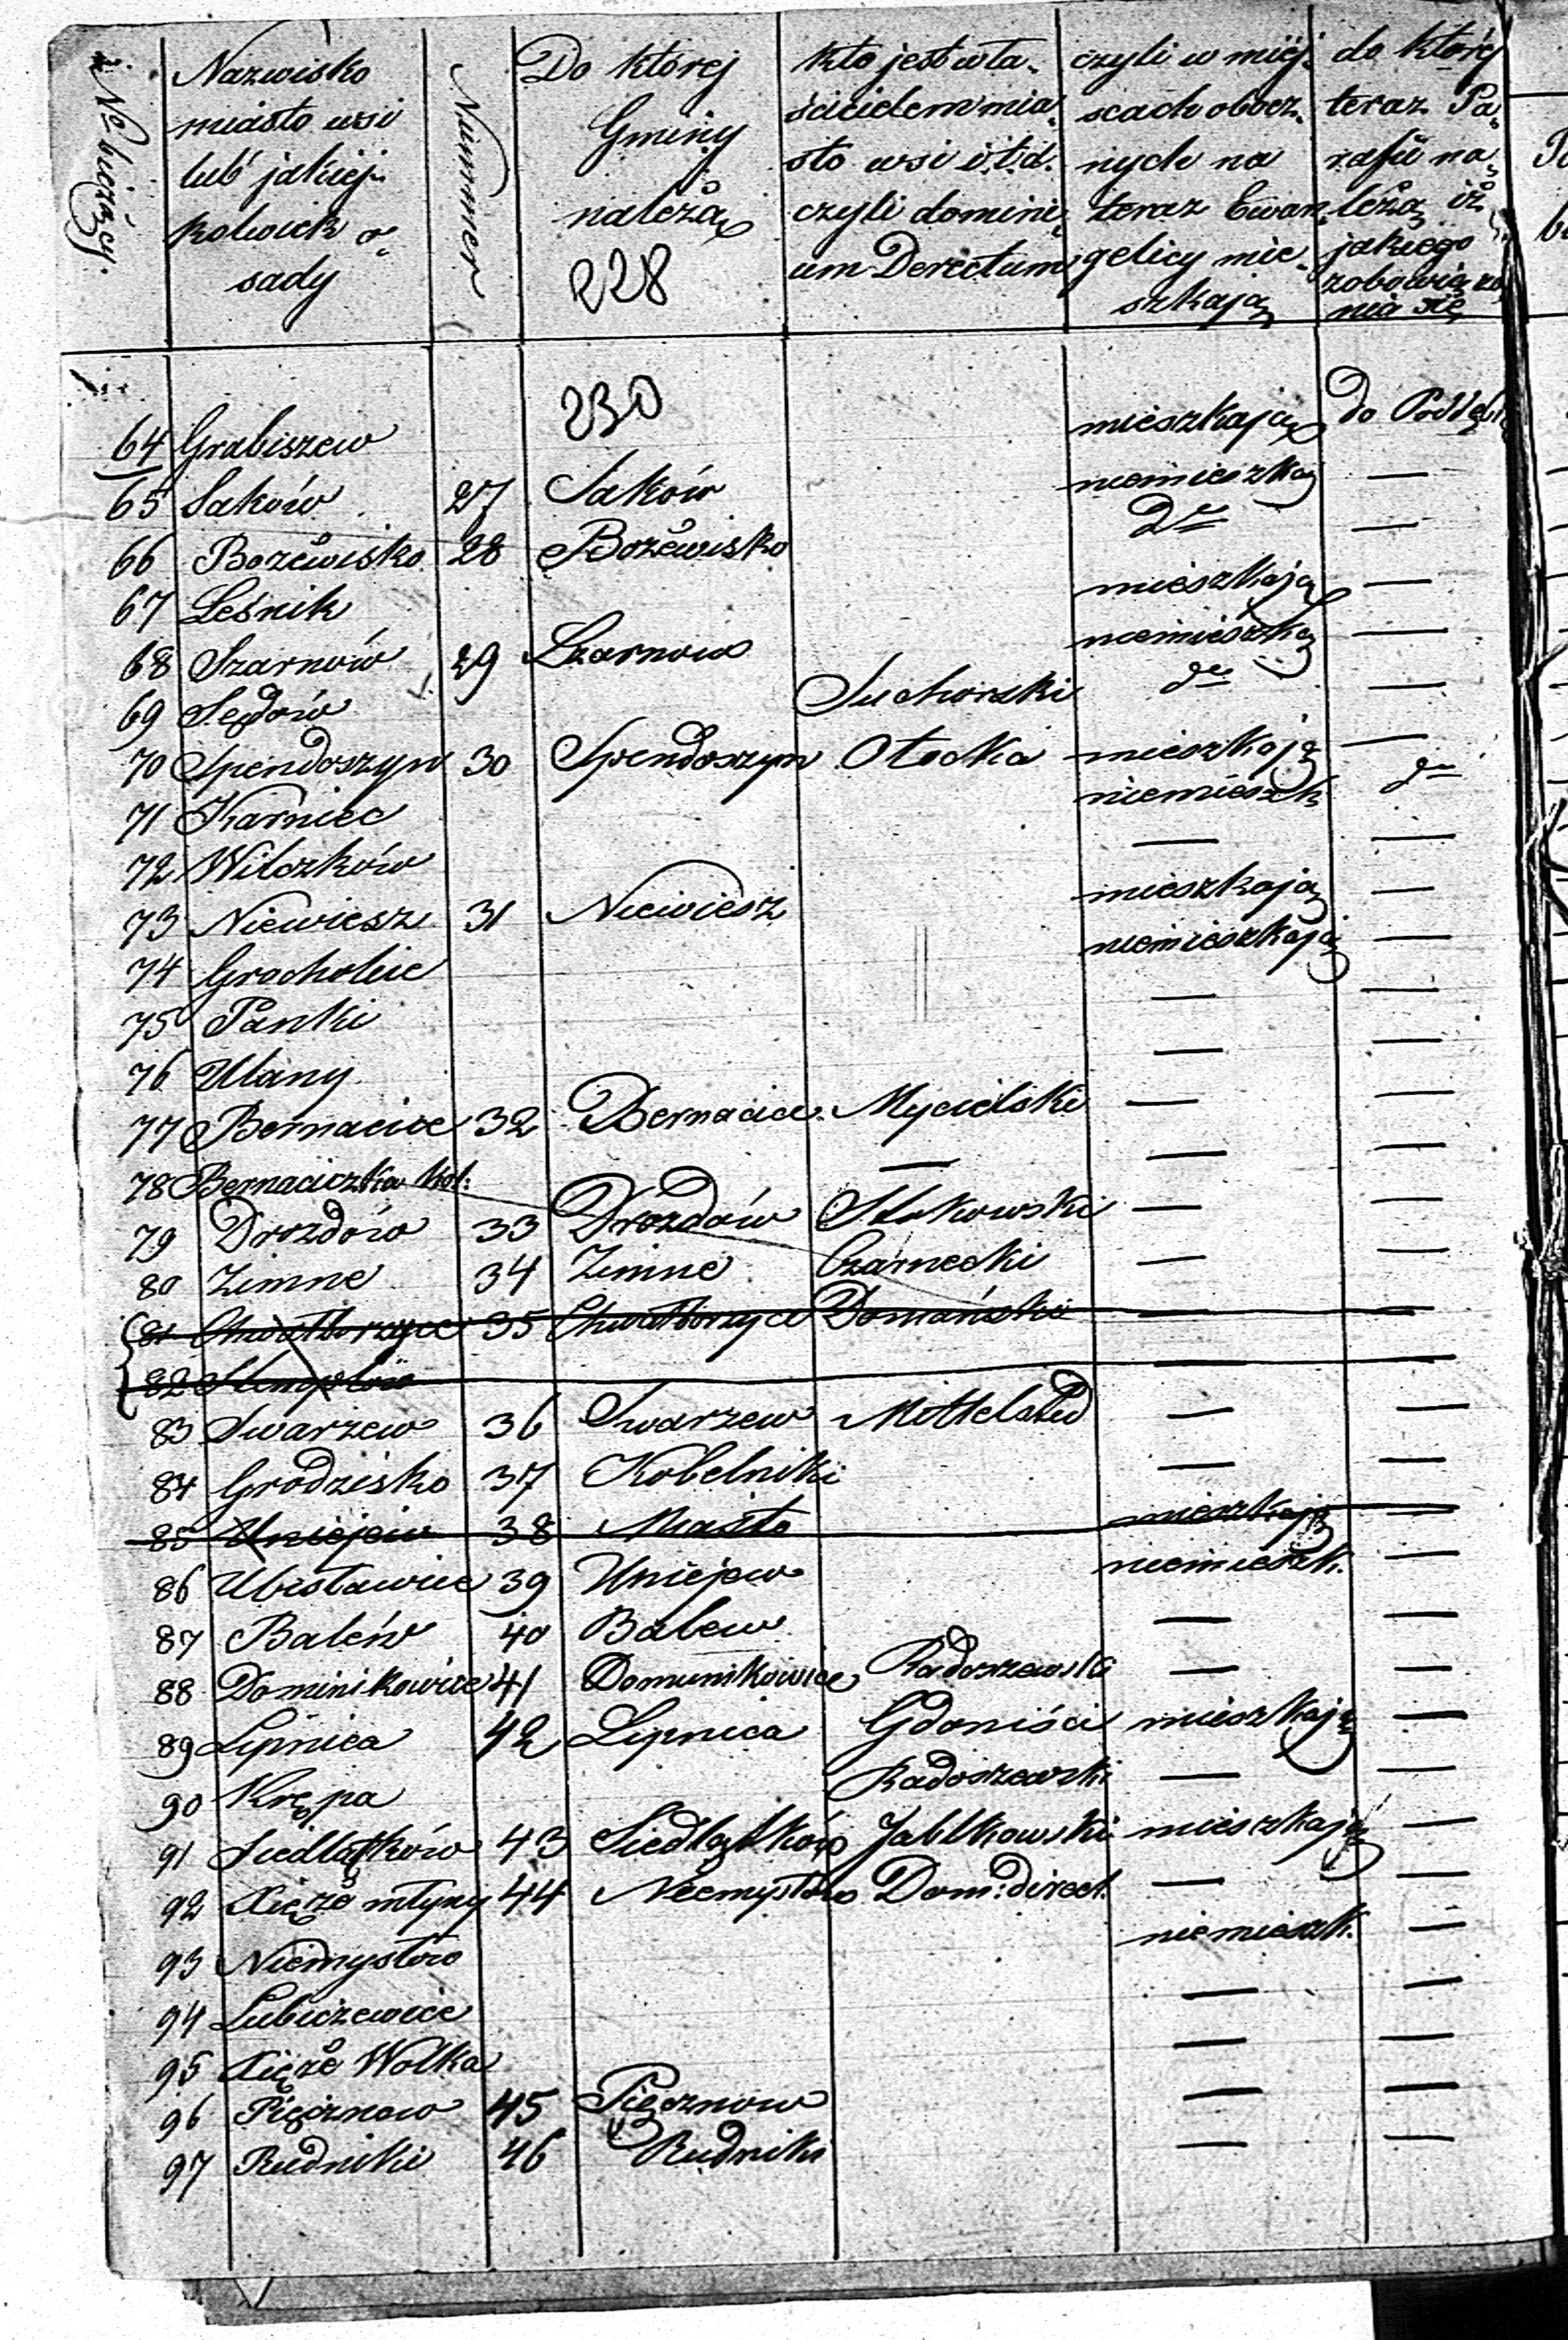 No bieżący.
Nazwisko
miasto wsi
lub jakiej-
kolwiek o-
sady
Nummer
Do której
Gminy
należą
228
kto jest wła-
ścicielem mia-
sto wsi i.t.d.
czyli domini-
um Derectum
czyli w miej-
scach obocz-
nych na
teraz Ewan-
gelicy mie-
szkają
do której
teraz Pa-
rafii na-
leżą iż
jakiego
nia się
230
64 Grabiszew mieszkają do
65 Saków 27 Saków niemieszkaj —
66 Bożewisko 28 Bożewisko Do —
67 Leśnik mieszkają —
68 Szarnów 29 Szarnow niemieszka —
69 Sędów Suchorski do —
70 Spendoszyn 30 Spendoszyn Otocka mieszkają —
71 Karniec niemieszk do
72 Wilczków — —
73 Niewiesz 31 Niewiesz mieszkają —
74 Grocholice niemieszkają —
75 Panki — —
76 Ulany — —
77 Bernacice 32 Bernacice Mycielski — —
78 Bernaciczka Kol. — — —
79 Drozdów 33 Drozdów Stokowski — —
80 Zimne 34 Zimne Czarnecki — —
81 Chwalborzyce 35 Chwalborzyce Domański — —
82 — —
83 Swarzew 36 Swarzew — —
84 Grodzisko 37 Kobelniki — —
85 Uniejew 38 Miasto mieszkają —
86 Ubisławice 39 Uniejew niemieszk. —
87 Balew 40 Balew — —
88 Dominikowice 41 Domunikowice Radoszewski — —
89 Lipnica 42 Lipnica mieszkają —
90 Krępa Radoszewski — —
91 Siedlątków 43 Siedlątków Jabłkowski mieszkają —
92 Xięże młyny 44 Niemysłow Dom: direct. — —
93 Niemysłow niemieszk. —
94 Lubiszewice — —
95 Xięże Wolka — —
96 Pięcznew 45 Pięcznow — —
97 Rudniki 46 Rudniki — —